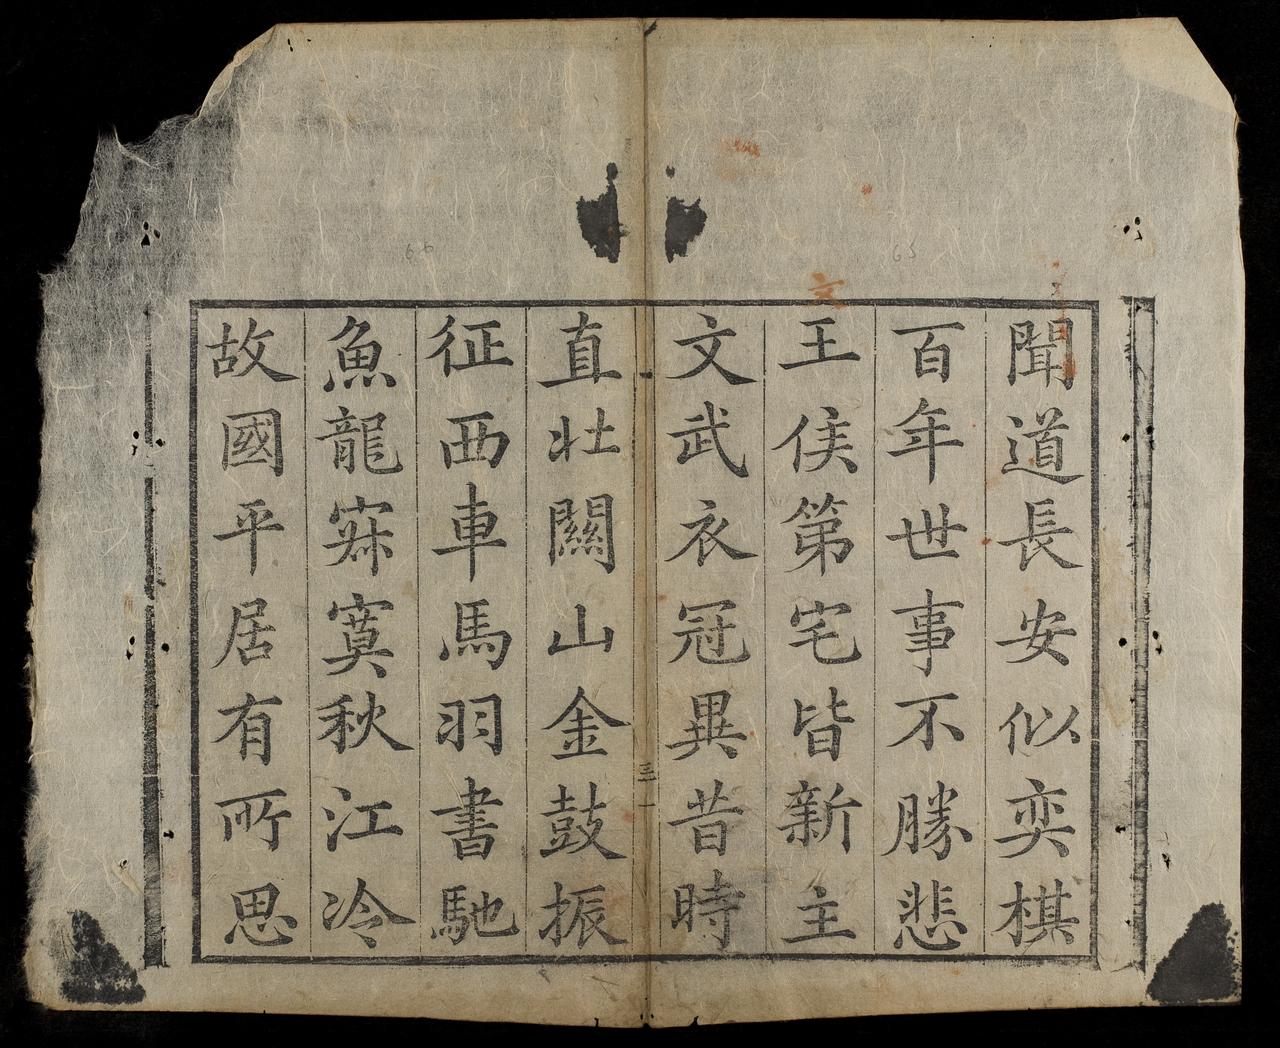 65
66
文
聞道長安似奕棋
百年世事不勝悲
王侯第宅皆新主
文武衣冠異昔時
三一
直北關山金鼓振
征西車馬羽書馳
魚龍寂寞秋江冷
故國平居有所思